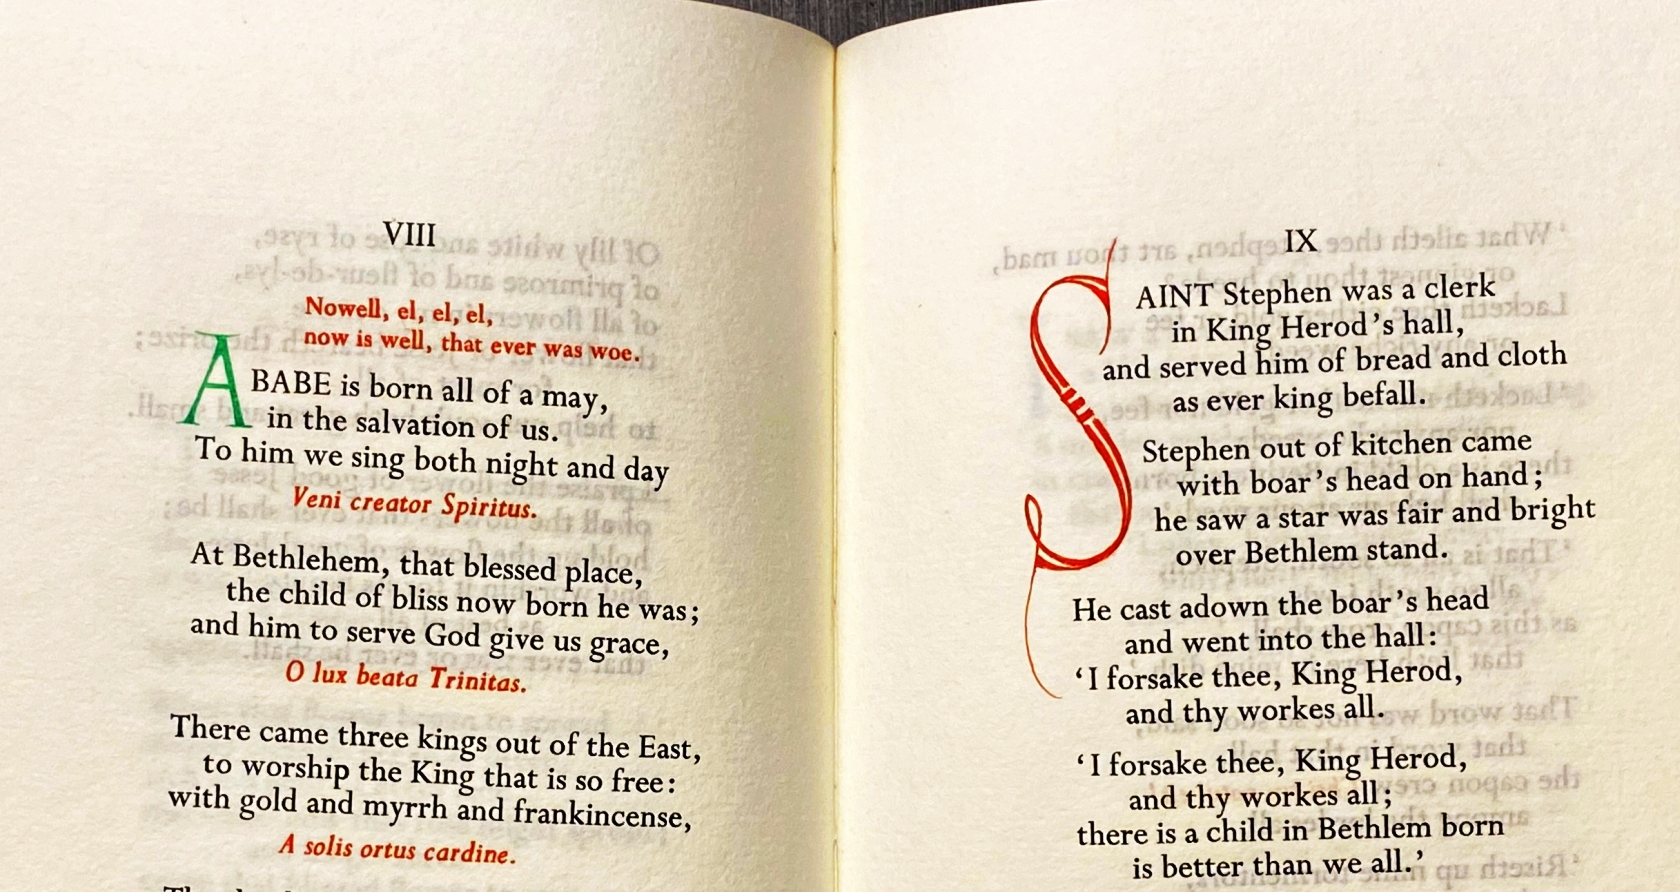 VIII
Nowell, el, el, el,
now is well, that ever was woe.
A BABE is born all of a may,
in the salvation of us.
To him we sing both night and day
Veni creator Spiritus.
At Bethlehem, that blessed place,
the child of bliss now born he was;
and him to serve God give us grace,
O lux beata Trinitas.
There came three kings out of the East,
to worship the King that is so free:
with gold and myrrh and frankincense,
A solis ortus cardine.
IX
SAINT Stephen was a clerk
in King Herod's hall,
and served him of bread and cloth
as ever king befall.
Stephen out of kitchen came
with boar's head on hand;
he saw a star was fair and bright
over Bethlem stand.
He cast adown the boar's head
and went into the hall:
‘I forsake thee, King Herod,
and thy workes all.
‘I forsake thee, King Herod,
and thy workes all;
there is a child in Bethlem born
is better than we all.’